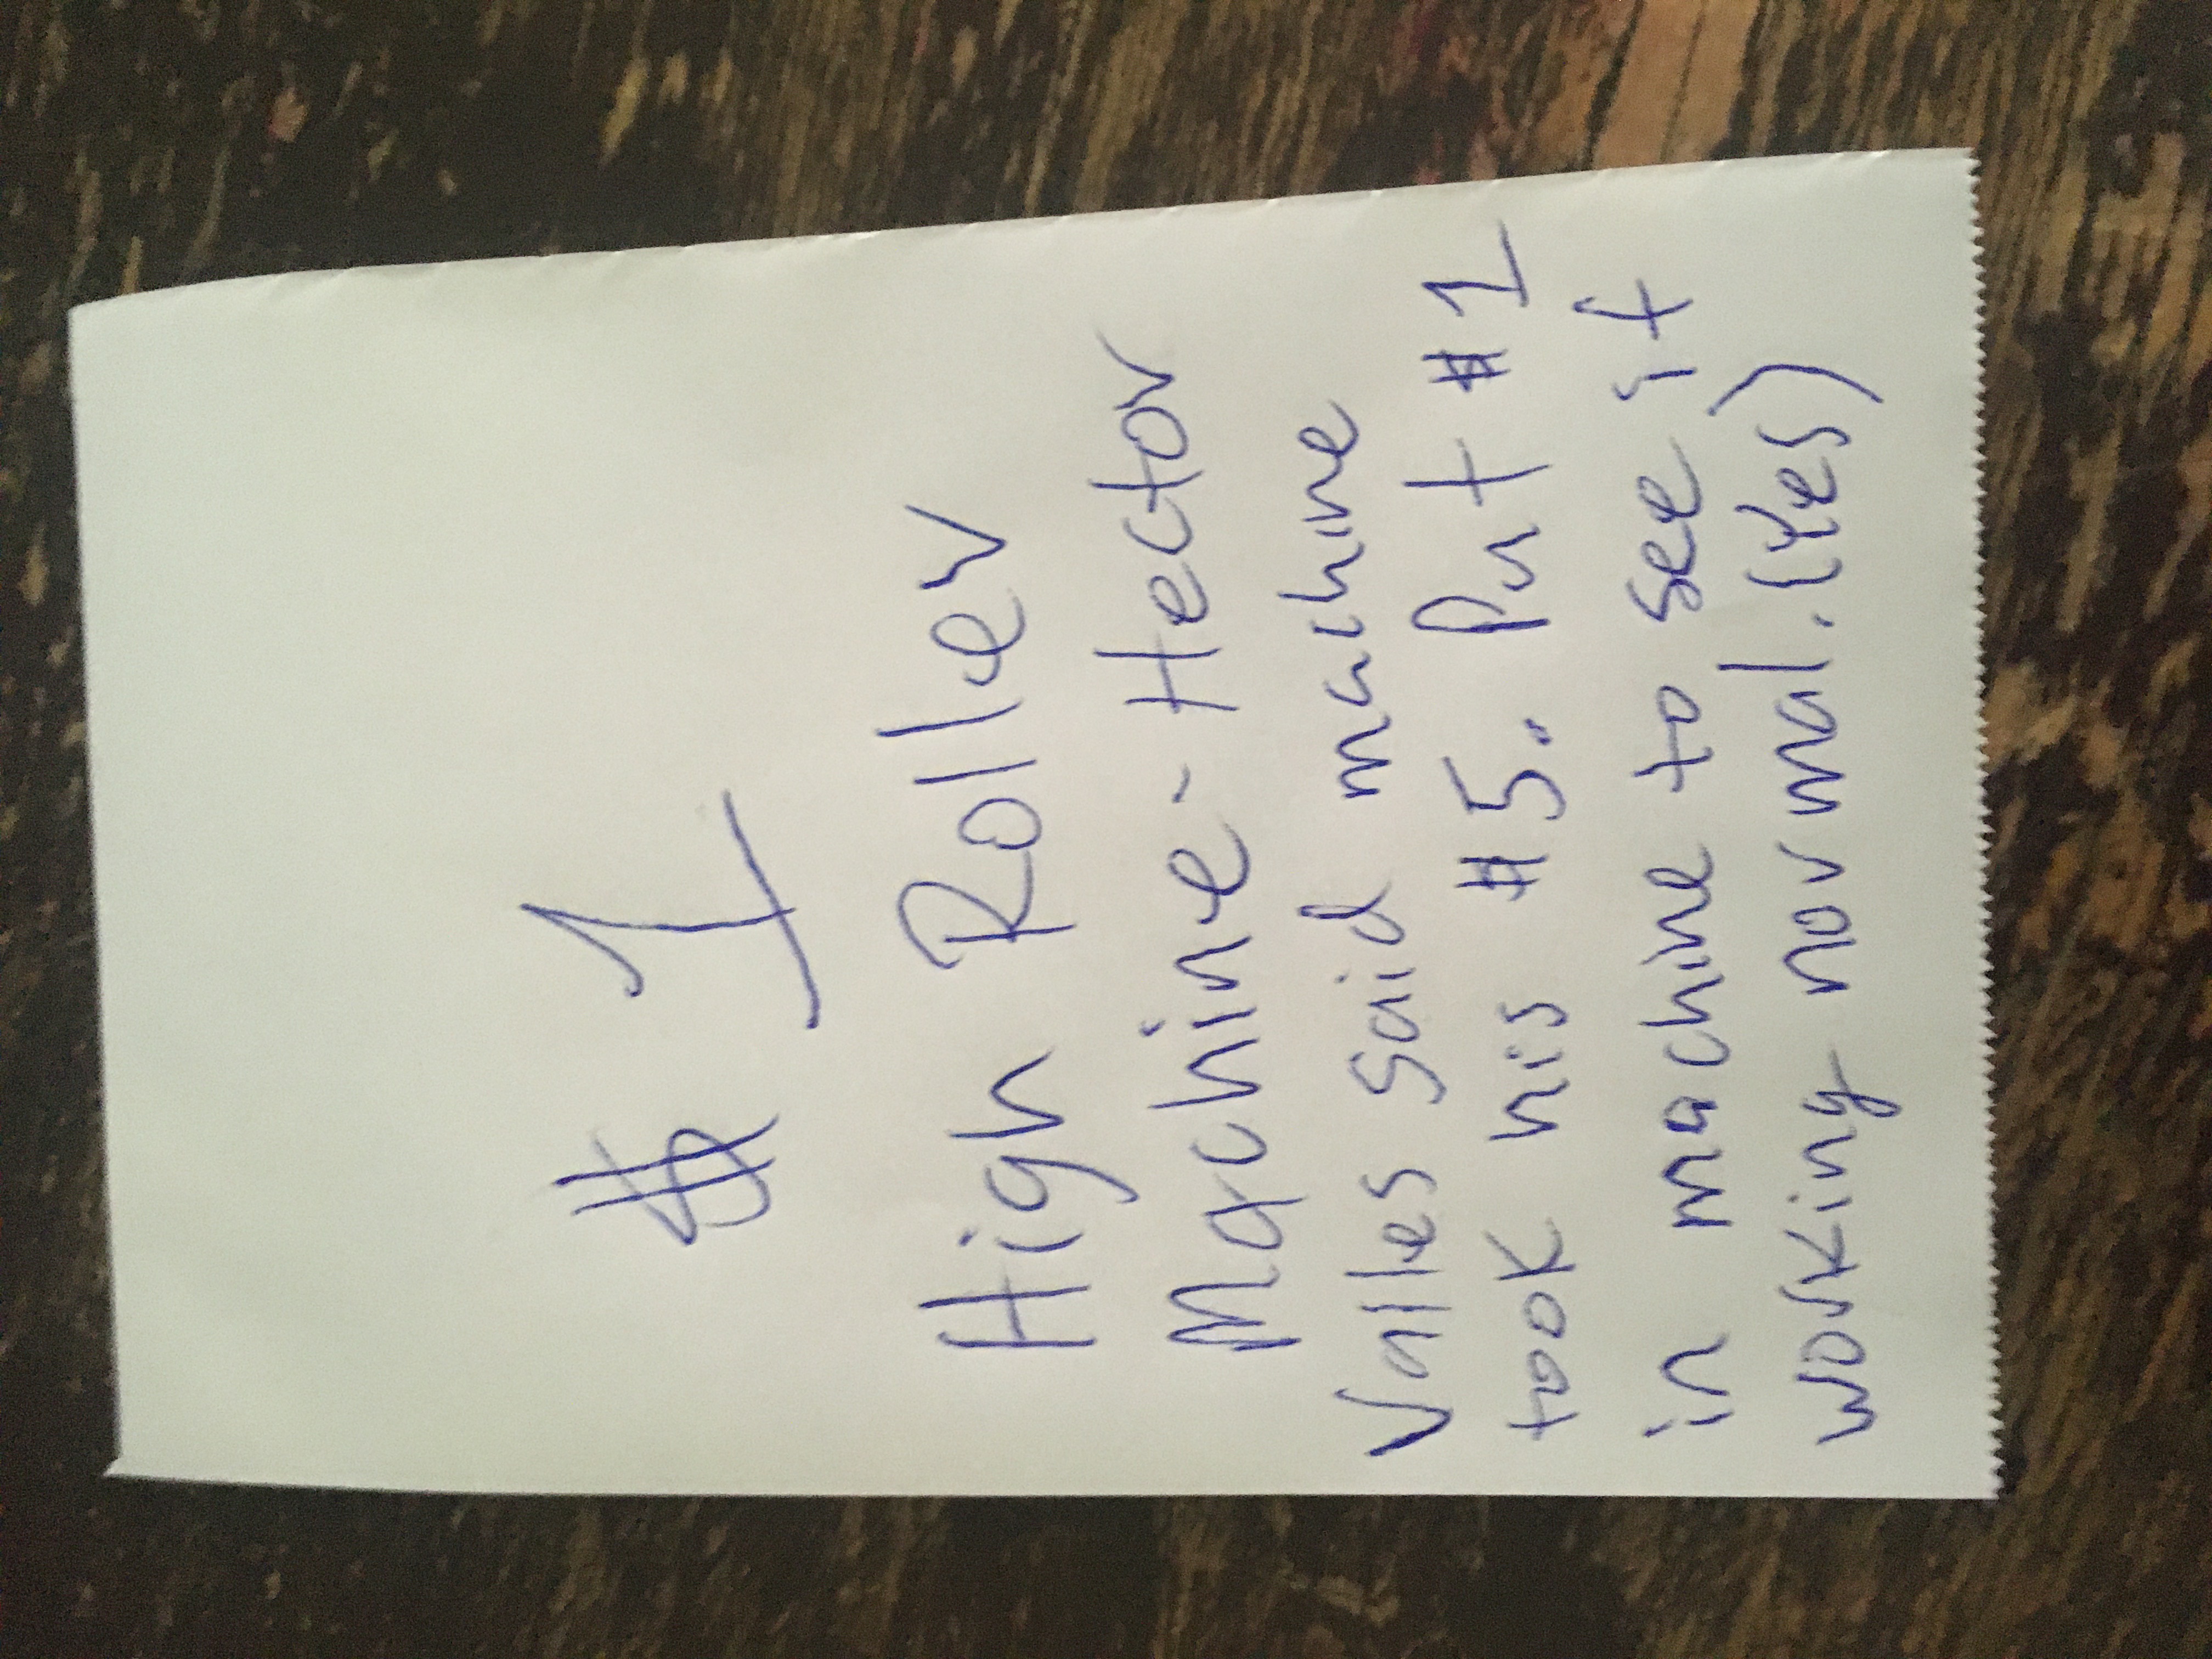 $ 1
High Roller
Machine - Hector
Valles said machine
took his #5. Put #1
in machine to see if
working normal. (Yes)